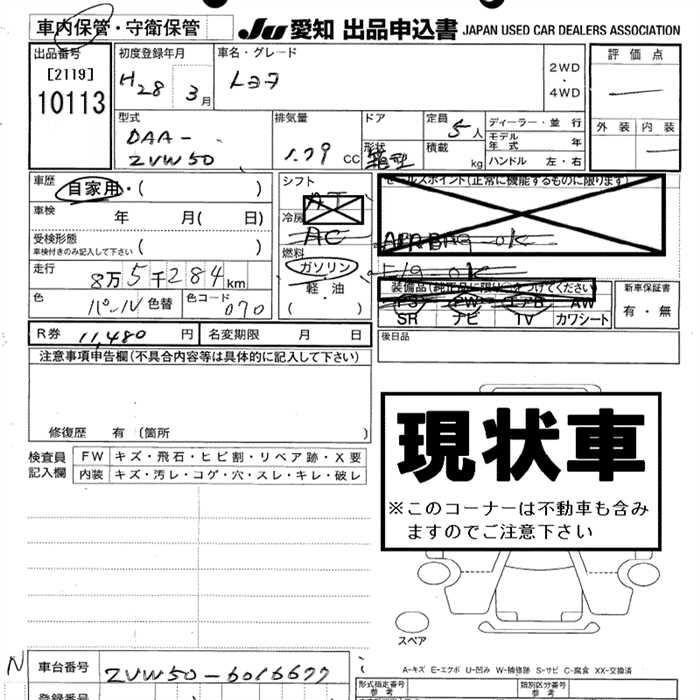 車内保管・守衛保管
JU 愛知 出品申込書 JAPAN USED CAR DEALERS ASSOCIATION
出品番号
[2119]
10113
初度登録年月
H28 3月
車名・グレード
トヨタ
2WD
・
4WD
評価点
外装 内装
型式
DAA-
ZVW50
排気量
1.79 cc
ドア
形状
箱型
定員
5人
積載
kg
ディーラー・並行
モデル年式 年
ハンドル 左・右
車歴
自家用・( )
車検 年 月( 日)
受検形態
車検付きのみ記入して下さい ( )
走行
8万5千284km
色
パール 色替
色コード
070
シフト
AT
冷房
AC
燃料
ガソリン
・
軽・油
( )
セールスポイント(正常に機能するものに限ります)
AIRBAG OK
装備品(純正品に限り○をつけてください)
PS PW エアB AW
SR ナビ TV カワシート
新車保証書
有・無
R券 11,480 円
名変期限 月 日
後日品
注意事項申告欄(不具合内容等は具体的に記入して下さい)
修復歴 有(箇所 )
検査員記入欄
FW キズ・飛石・ヒビ割・リペア跡・X要
内装 キズ・汚レ・コゲ・穴・スレ・キレ・破レ
現状車
※このコーナーは不動車も含み
ますのでご注意下さい
スペア
A-キズ E-エクボ U-凹み W-補修跡 S-サビ C-腐食 XX-交換済
N
車台番号
ZVW50-6016677
登録番号
形式指定番号
参考
類別区分番号
参考